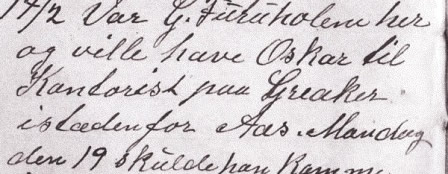 14/2 Var G. Furuholem her
og ville have Oskar til
Kontorist paa Greaker
istedenfor Aas. Mandag
den 19 skulde han komme